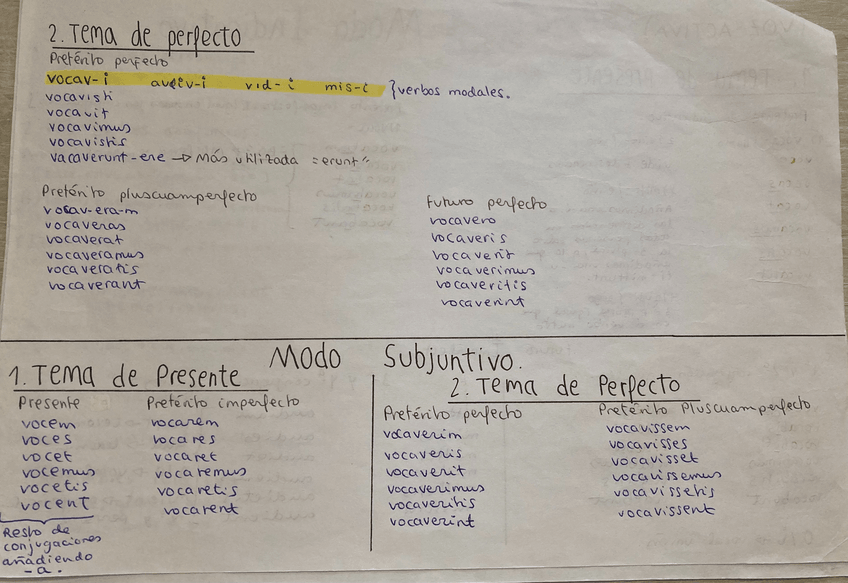 2. Tema de perfecto
Pretérito perfecto
vocav-i audiv-i vid-i mis-i } verbos modales.
vocavisti
vocavit
vocavimus
vocavistis
vacaverunt-ere → Más utilizada = erunt"
Pretérito pluscuamperfecto
vocav-era-m
vocaveras
vocaverat
vocaveramus
vocaveratis
vocaverant
Futuro perfecto
vocavero
vocaveris
vocaverit
vocaverimus
vocaveritis
vocaverint
Modo Subjuntivo.
1. Tema de Presente
Presente
vocem
voces
vocet
vocemus
vocetis
vocent
Resto de
conjugaciones
añadiendo
-a.
Pretérito imperfecto
vocarem
vocares
vocaret
vocaremus
vocaretis
vocarent
2. Tema de Perfecto
Pretérito perfecto
vocaverim
vocaveris
vocaverit
vocaverimus
vocaveritis
vocaverint
Pretérito Pluscuamperfecto
vocavissem
vocavisses
vocavisset
vocavissemus
vocavissetis
vocavissent